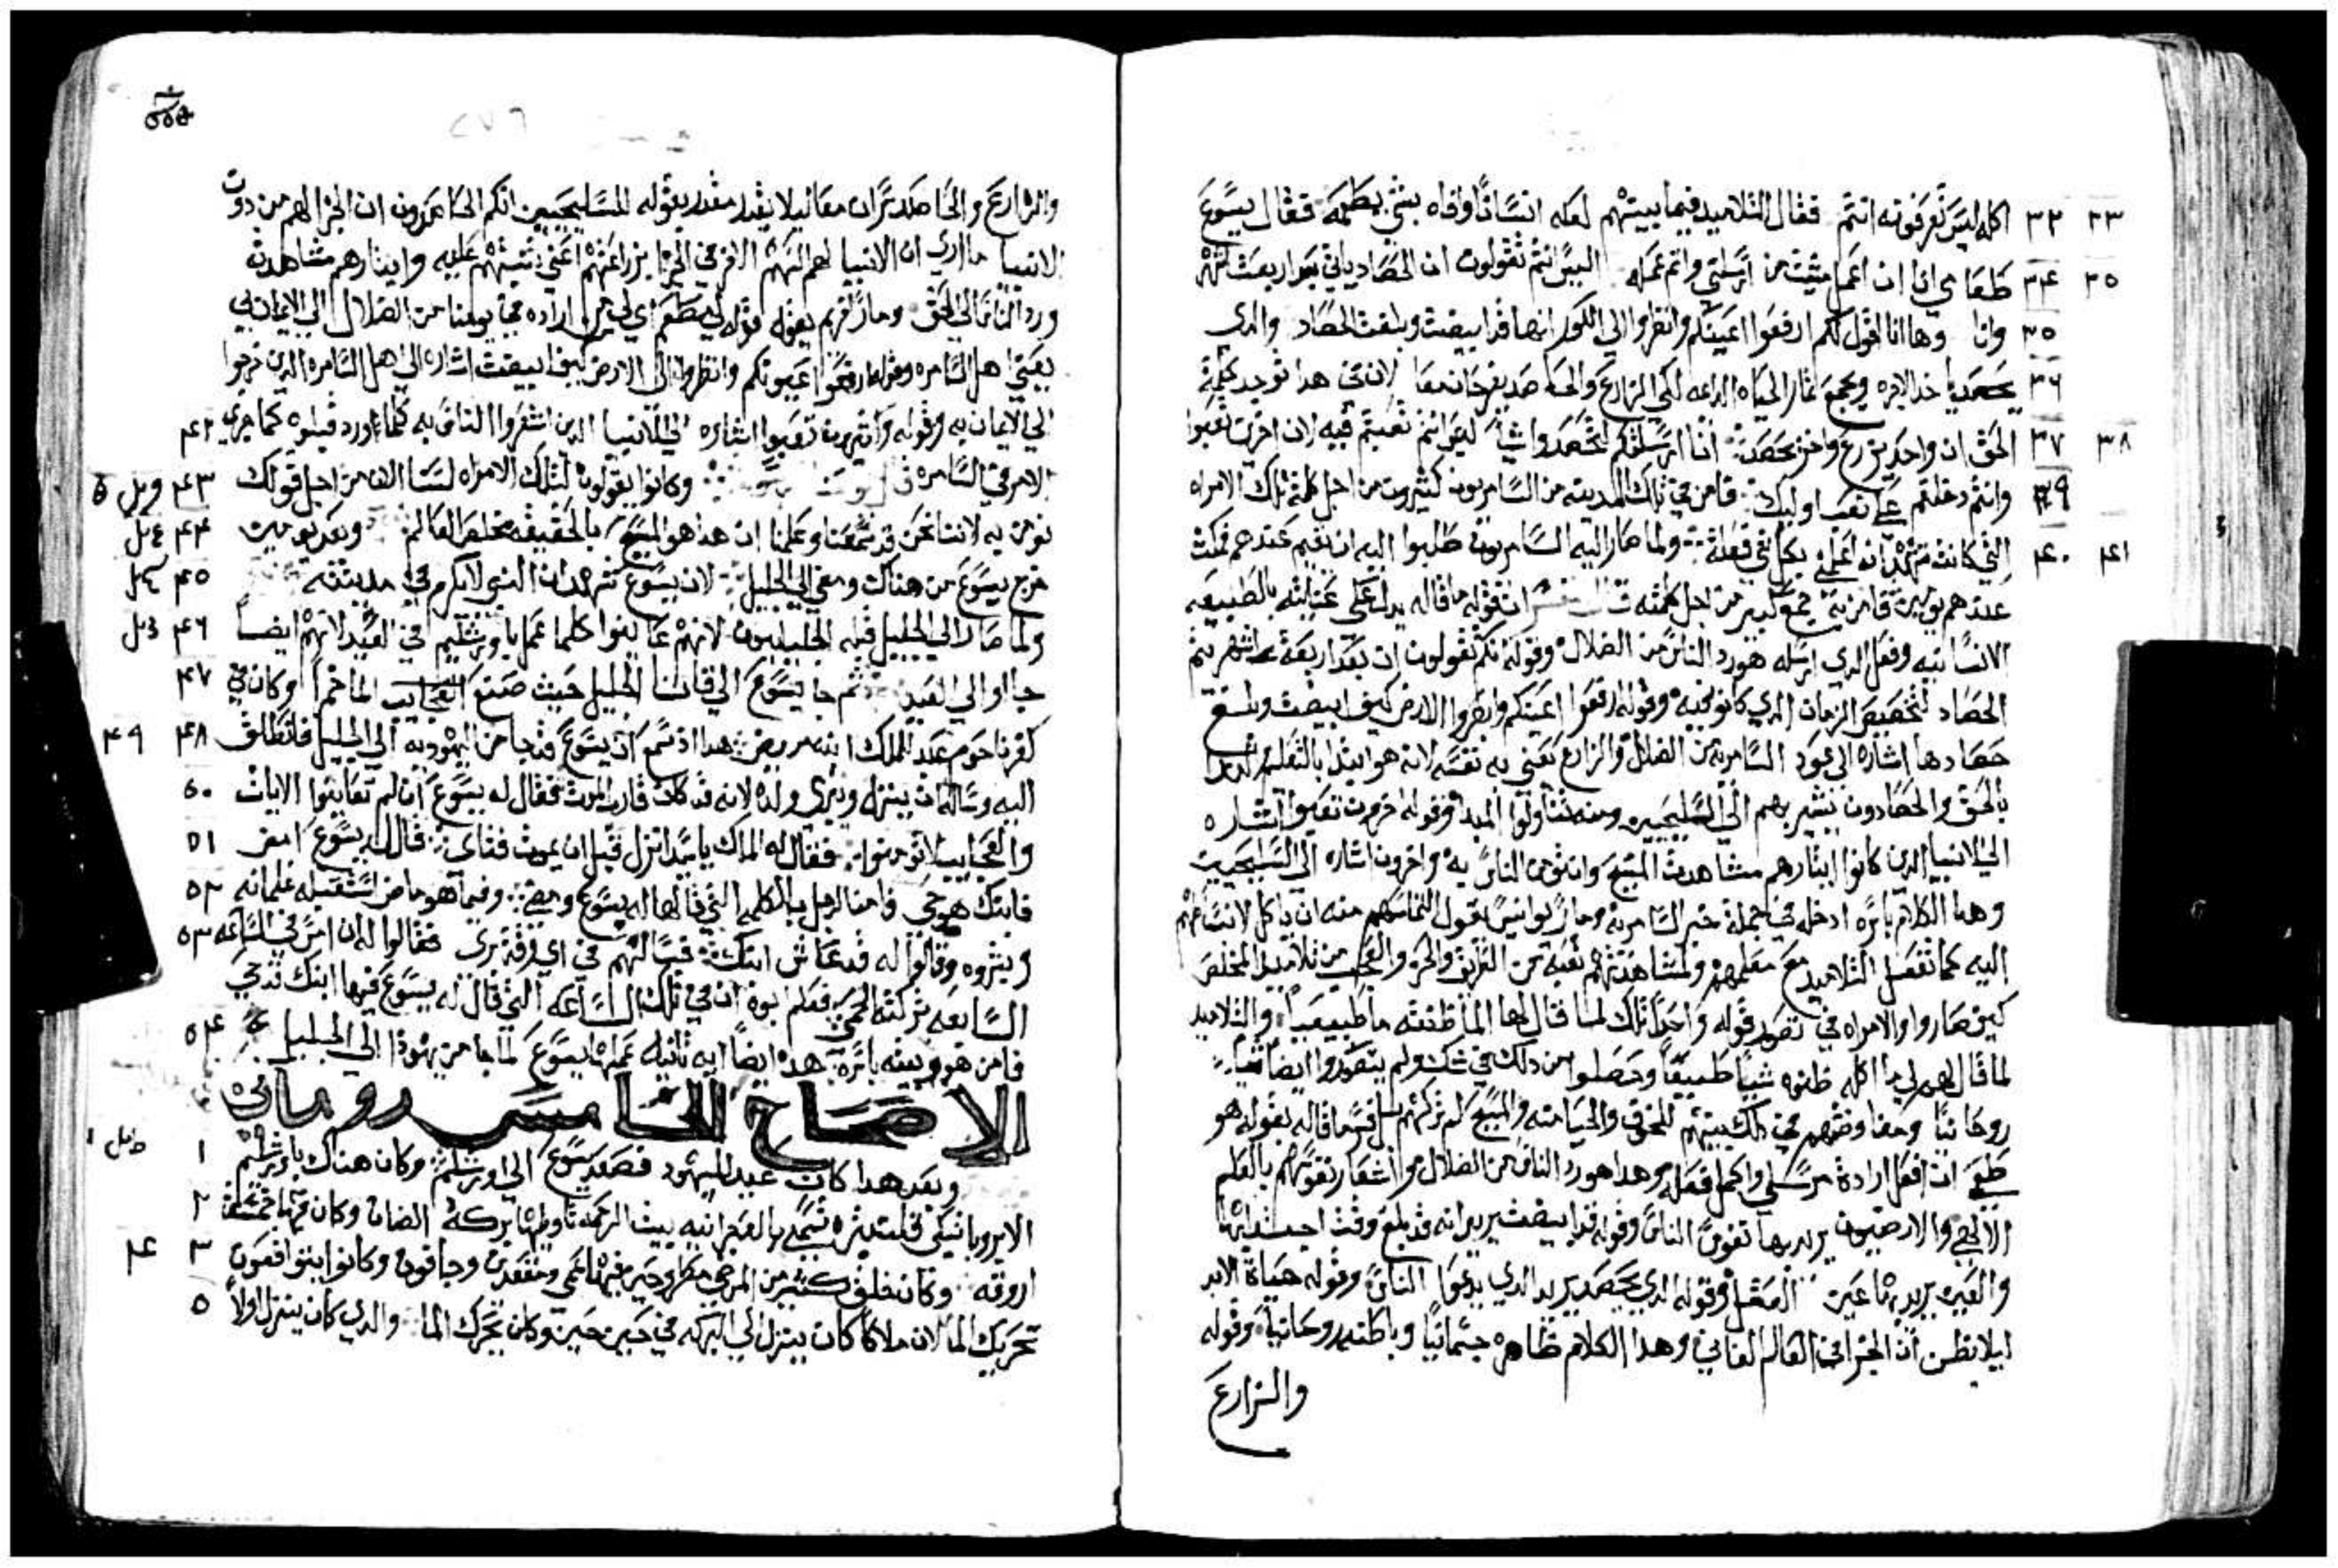 ٣٣ ٣٢ اكله ليس تعرفونه انتم فقال التلاميد فيما بينهم لعله انسانًا وافاه بشي يطعمه فقال يسوع
٣٥ ٣٤ طعامي انا ان اعمل مشيت من ارسلني واتم عمله اليس انتم تقولون ان الحصاد ياتي بعد اربعت اشهر
٣٥ وانا وها انا اقول لكم ارفعوا اعينكم وانظروا الي الكور انها قد ابيضت وبلغت الحصاد والدي
٣٦ يحصد ياخد الاجره ويجمع ثمار الحياه الدايمه لكي الزارع والحاصد يفرحان معا لان في هدا توجد كلمة
٣٨ ٣٧ الحق ان واحد يزرع واخر يحصد انا ارسلتكم لتحصدوا شيا ليس انتم تعبتم فيه لان اخرين تعبوا
٣٩ وانتم دخلتم علي تعب اوليك فامن في تلك المدينه من السامريون كثيرون من اجل كلمة تلك الامراه
٤١ ٤٠ التي كانت تشهد انه اعلمني بكل شي فعلته ولما صار اليه السامريون طلبوا اليه ان يقيم عندهم فمكث
عندهم يومين فامن به جمع كبير من اجل كلمته قال المفسر ان قوله ما قاله يدل علي عنايته بالطبيعه
الانسانيه وفعل الدي ارسله هو رد الناس من الضلال وقوله انكم تقولون ان بعد اربعة اشهر يتم
الحصاد لتخصيص الزمان الدي كانو فيه وقوله ارفعوا اعينكم وابصروا الارض كيف ابيضت وبلغ
حصادها اشاره الي عود السامريه من الضلال والزارع يعني به نفسه لانه هو ابتدا بالتعليم
بالحق والحصادون يشير بهم الي السليحيين ومنه تناولوا المبدا وقوله اخرون تعبوا اشاره
الي الانبيا الدين كانوا ايثارهم مشاهدت المسيح وان يومن الناس به واخرون اشاره الي السليحيين
وهدا الكلام باسره ادخله في جملة خبر السامريه ومار يوانيس يقول التماسهم منه ان ياكل لانبساطهم
اليه كما تفعل التلاميد مع معلمهم ولمشاهدتهم تعبه من الطريق والحر والعجب من تلاميد المخلص
كيف صاروا والامراه في تصور قوله واحدًا تلك لما قال لها الما ظنته ما طبيعيًا والتلاميد
لما قال لهم لي ما اكله ظنوه شيًا طبيعيًا وحصلوا من دلك في شك ولم يتصوروا ايضا شيا
روحانيًا ومفاوضتهم في دلك بينهم للخوف والحيا منه والمسيح لم يتركهم بل فسر ما قاله بقوله هو
طعمي ان افعل ارادة مرسلي واكمل فعله وهدا هو رد الناس من الضلال واشعار نفوسهم بالعلم
الالهي والارضيون يريد بها نفوس الناس وقوله قد ابيضت يريد انه قد بلغ وقت اجتدابها
والعين يريد بها عين العقل وقوله الدي يحصد يريد الدي يدعوا الناس وقوله حياة الابد
ليلا يظن ان الجزا في العالم الفاني وهدا الكلام ظاهره جسمانيًا وباطنه روحانيا وقوله
والزارع
والزارع والحاصد يسران معا ليلا يقدر مقدر بقوله للسليحيين انكم الحاصدون ان الجزا لهم من دون
الانبيا ما ادري ان الانبيا لهم السهم الاوفر في الجزا بزراعتهم اعني تنبيههم عليه وايثارهم مشاهدته
ورد الناس الي الحق
يعني اهل السامره وقوله ارفعوا عيونكم وانظروا الي الارض كيف ابيضت اشاره الي اهل السامره الدين خرجوا
الي الايمان به وقوله واخرون تعبوا اشاره الي الانبيا الدين اشعروا الناس به كلما ورد قبلوه كما جري ٤٢
الامر في السامره وكانوا يقولون لتلك الامراه لسنا الان من اجل قولك ٤٣
نومن به لاننا نحن قد سمعنا وعلمنا ان هدا هو المسيح بالحقيقه مخلص العالم وبعد يومين ٤٤
خرج يسوع من هناك ومضي الي الجليل لان يسوع شهد ان النبي لا يكرم في مدينته ٤٥
ولما صار الي الجليل قبله الجليليون لانهم عاينوا كلما عمل باورشليم في العيد لانهم ايضا ٤٦
جااوا الي العيد ثم جا يسوع الي قانا الجليل حيث صنع الما خمرا وكان في ٤٧
كفرناحوم عبد الملك ابنه مريض هدا اد سمع ان يسوع قد جا من اليهوديه الي الجليل فانطلق ٤٨ ٤٩
اليه وساله ان ينزل ويبري ولده لانه قد كان قارب الموت فقال له يسوع ان لم تعاينوا الايات ٥٠
والعجايب لا تومنوا فقال له الملك يا سيد انزل قبل ان يموت فتاي قال له يسوع امض ٥١
فابنك هو حي فامن الرجل بالكلمه التي قالها له يسوع ومضي وفيما هو ماض استقبله غلمانه ٥٢
وبشروه وقالوا له قد عاش ابنك فسالهم في اي وقت بري فقالوا له ان امس في الساعه ٥٣
السابعه تركته الحمي فعلم ابوه ان في تلك الساعه التي قال له يسوع فيها ابنك قد حي
فامن هو وبيته باسره هده ايضًا ايه ثانيه عملها يسوع لما جا من يهودا الي الجليل ٥٤
الاصحاح الخامس روماني
وبعد هدا كان عيد اليهود فصعد يسوع الي اورشليم وكان هناك باورشليم ١
الابروباتيكي تسمي بالعبرانيه بيت الرحمه بركة الضان وكان فيها خمسة ٢
اروقه وكان خلق كثير من المرضي مطروحين فيها عمي ومقعدين وجافون وكانوا ٣ ٤
تحريك الما لان ملاكًا كان ينزل الي البركه في حين حين وكان يحرك الما والدي كان ينزل اولًا ٥